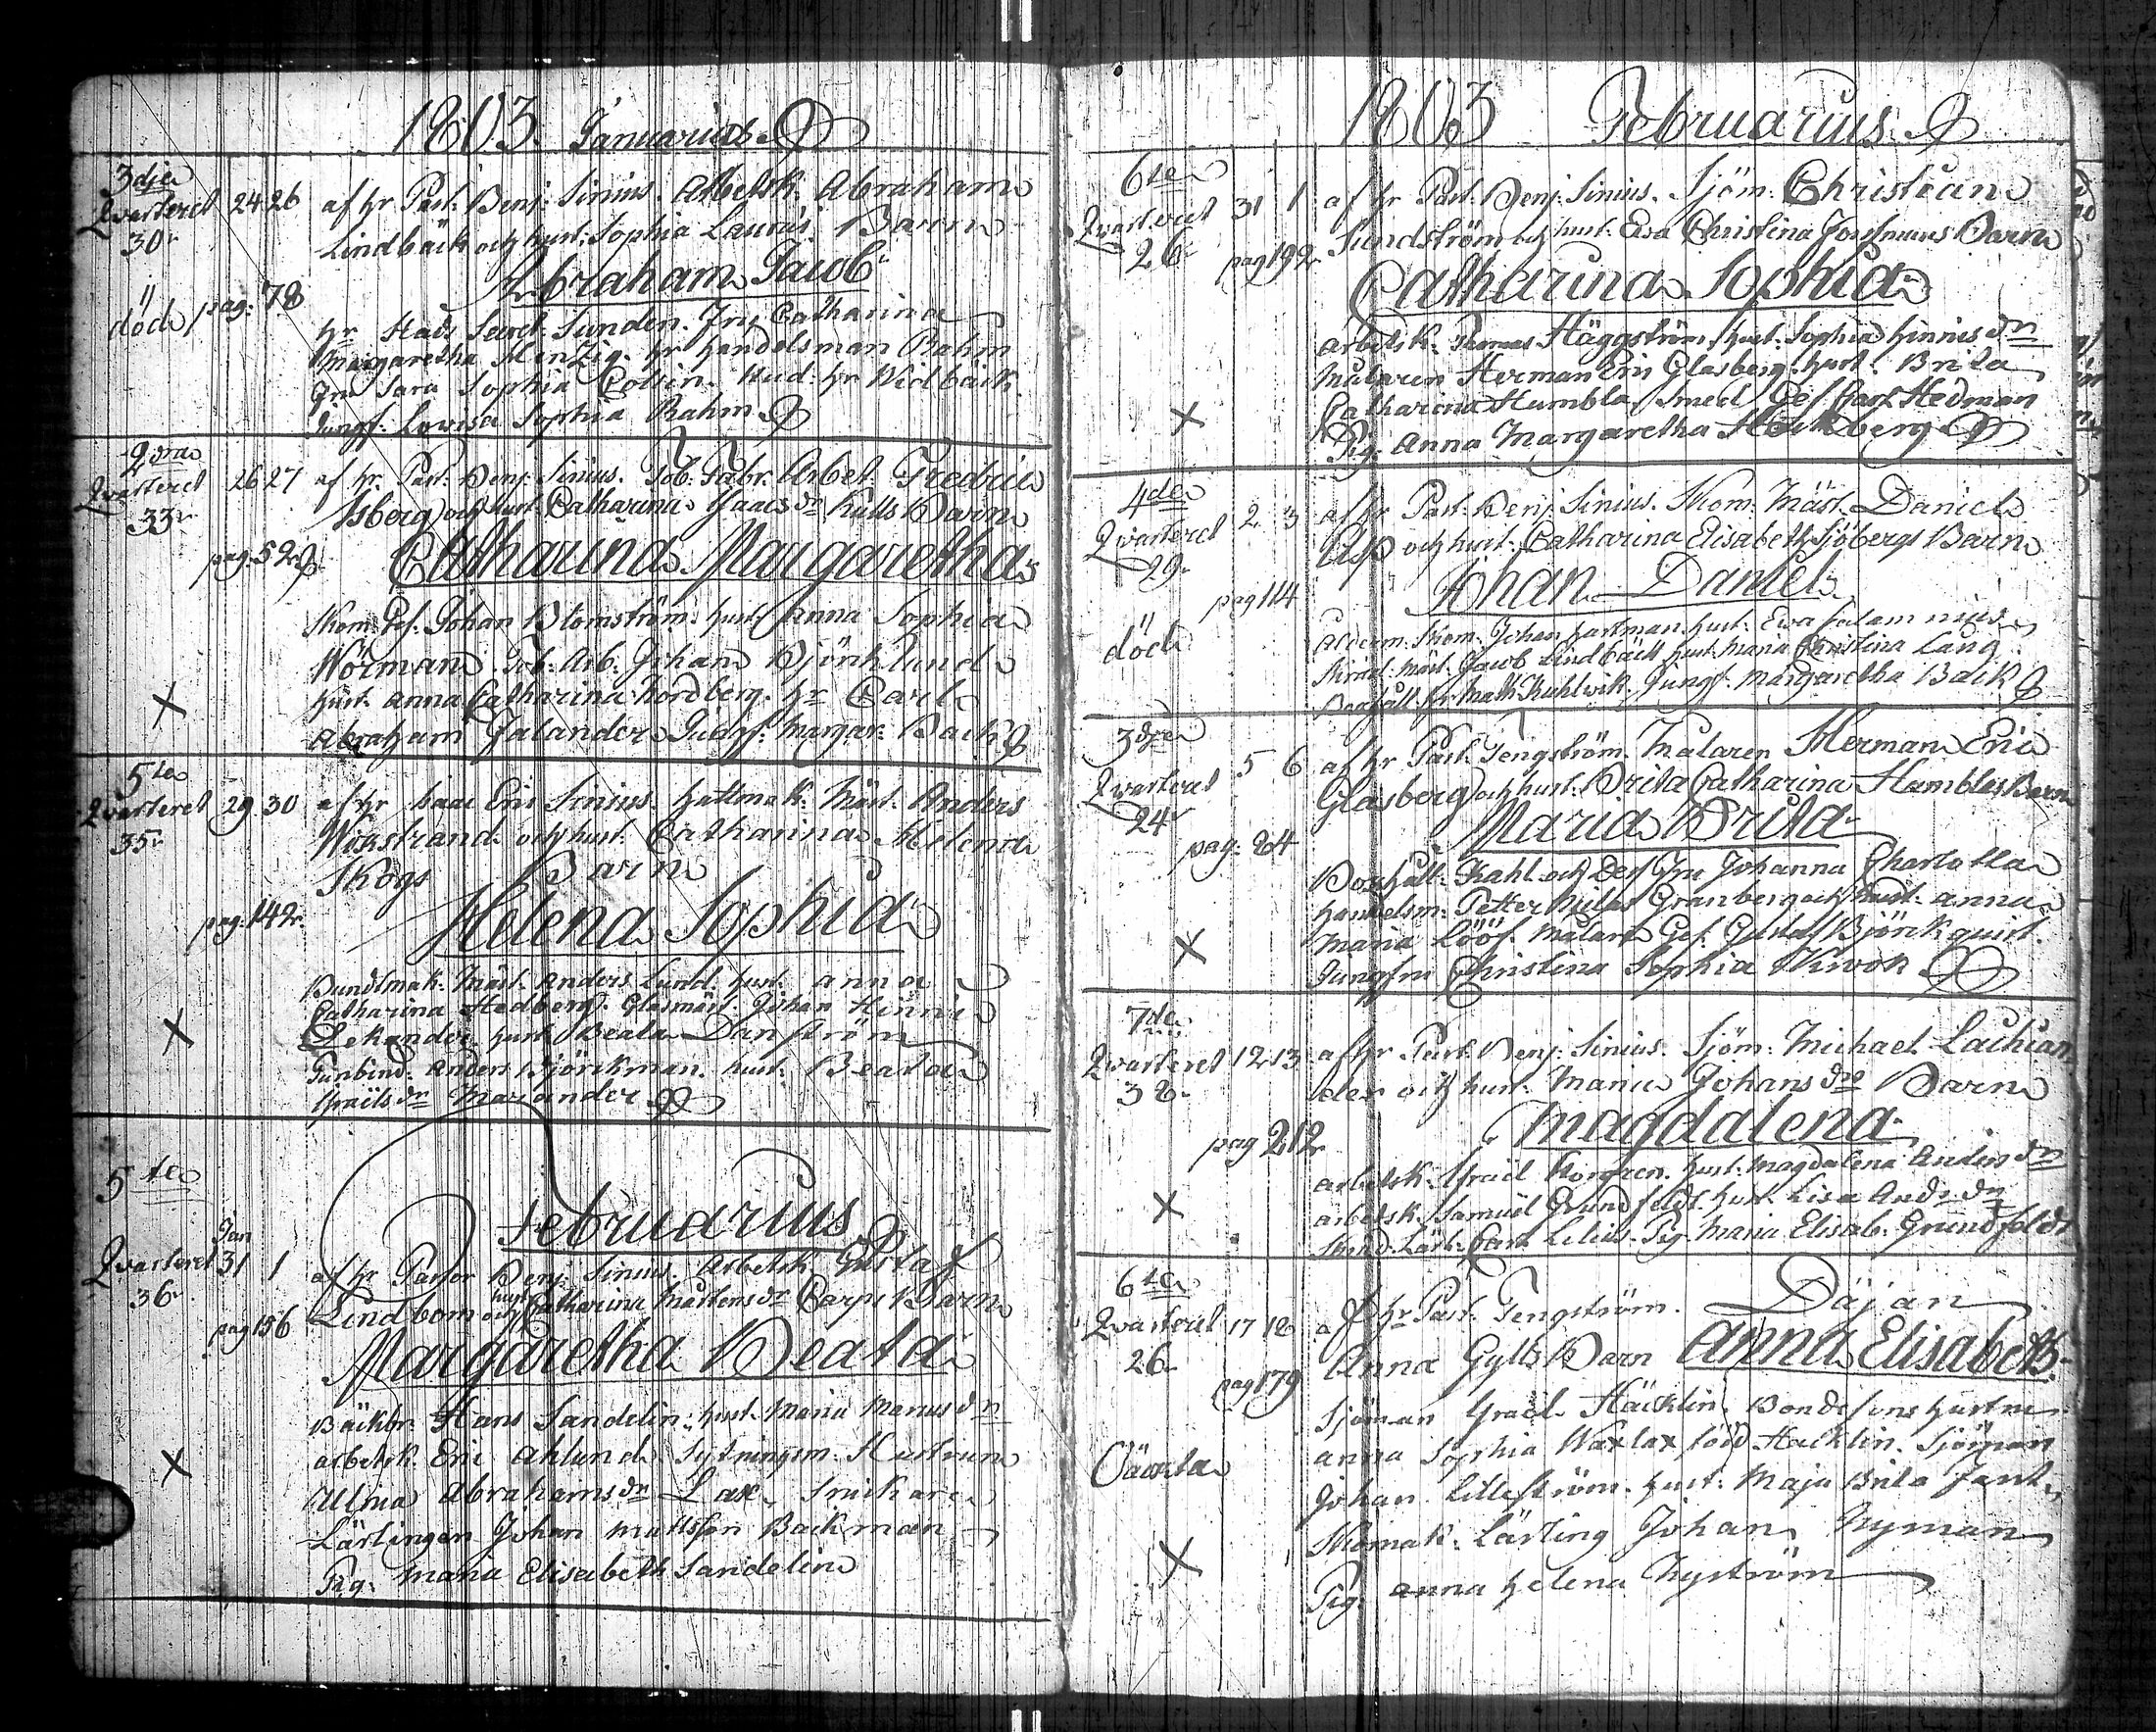 1803. Januarius
3dje
Qvarteret 24 26 af hr Past: Benj: Sinius. Arbetsk. Abraham
30. Lindbäck och hust: Sophia Laurᷤ Barn
Abraham Jacob
död pag: 78
hr Stads Secret. Sunden. Fru Catharina
Margaretha hr Handelsman Rahm
Fru Sara Sophia Collin. Stud: hr Widbäck
Jungf: Lovisa Sophia Rahm
2dra
Qvarteret 26 27 af hr. Past: Benj: Sinius. Tob: Fabr: Arbet: Fredric
33. Isberg och hust: Catharina Isaacs dr Kulls Barn
pag. 52.
Catharina Margaretha
Skom: Ges. Johan Blomström. hust: Anna Sophia
Wörman. Tob: Arb. Johan Björklund
hust. Anna Catharina Nordberg. hr Carl
X Abraham Falander. Jungf: Margar: Back
5te
Qvarteret 29. 30 af hr Isaac Eric Sinius. Hattmak: Mäst. Anders
35. Wokstrand och hust: Catharina Helena
Skogs Barn
pag: 142.
Helena Sophia
Bundtmak: Mäst. Anders Lund. hust: Anna
Catharina Hedberg. Glasmäst: Johan Hinric
X Zekander. hust: Beata Danström
Anders Björkman. hust: Beata
Israels dr Marander
5te
Februarius
Jan
Qvarteret 31 1 af hr Pastor Benj: Sinius. Arbetsk. Gustaf
36. Lindbom och hust Catharina Mårtens dr Carps Barn
pag 156
Margaretha Beata
Bäckbr: Hans Sandelin. hust. Maria Marcus dr
Arbetsk. Eric Ahlund. Sytningsm. Hustrun
X Ulrica Abrahams dr Lax. Snickare
Lärlingen Johan Mattsson Backman
Pig: Maria Elisabeth Sandelin
1803 Februarius
6te
Qvarteret 31 1 af hr Past: Benj: Sinius. Sjöm: Christian
26. Sundström och hust: Eva Christina Barn
pag 192.
Catharina Sophia
Arbetsk. Thomas Häggström hust: Sophia Hinrics dr
Målaren Herman Eric Glasberg. hust: Brita
X Catharina Humbla. Smed Ges Carl Hedman
Pig: Anna Margaretha
4de
Qvarteret 2 3 af hr Past: Benj: Sinius. Skom: Mäst. Daniel
29. Asp och hust: Catharina Elisabeth Sjöbergs Barn
pag 114
Johan Daniel
död Alderm. Skom. Johan Hartman. hust: Eva Salamnius
Skräd: Mäst. Jacob Lindbäck hust Maria Christina Lång
Boghåll: hr Math Kuhlwik. Jungf. Margaretha Back
3dje
Qvarteret 5 6 af hr Past. Tengström. Målaren Herman Eric
24. Glasberg och hust: Brita Catharina Humblas Barn
pag: 84
Maria Brita
Boghåll: Kahl och Dess Fru Johanna Charlotta
Handelsm: Petter Niclas Granberg och hust: Anna
X Maria Lööf. Målare Ges. Gustaf Björkquist.
Jungfru Christina Sophia Skrook
7de
Qvarteret 12 13. af hr Past: Benj: Sinius. Sjöm: Michael Lachian
38. der och hust: Maria Johans dr Barn
pag 212
Magdalena
Arbetsk. Israel Norgren. hust: Magdalena Anders dr
X Arbetsk. Samuel Grundfeldt. hust. Lisa Anders dr
Lärl. Carl Lilius. Pig. Maria Elisab: Grundfeldt
6te
Qvarteret 17 18 af hr Past: Tengström. Däjan
26. Anna Gylts Barn Anna Elisabeth.
pag 179
Sjöman Israel Häcklin. Bondesons hustru
Oäckta Anna Sophia Waxlax född Häcklin. Sjöman
Johan Lilleström. hust: Maja Brita Fant.
X Skomak. Lärling Johan Nyman
Pig. Anna Helena Nyström